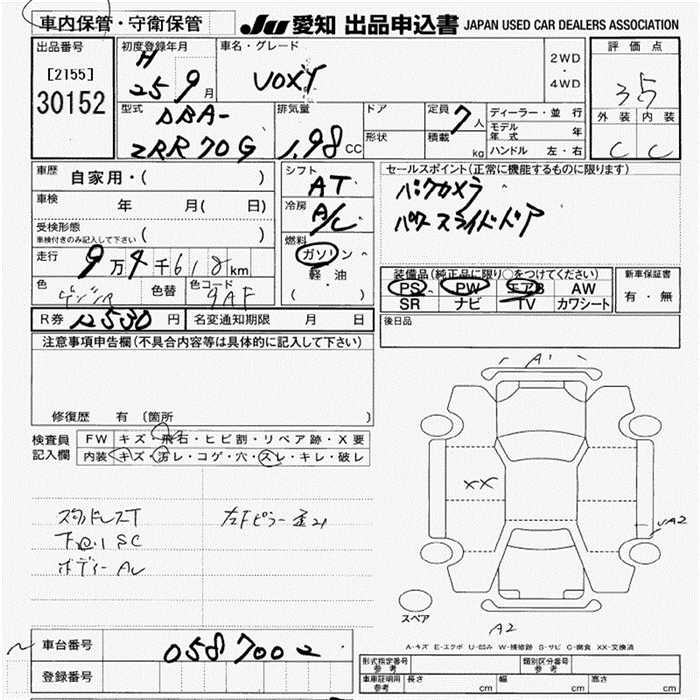 車内保管・守衛保管 JU 愛知 出品申込書 JAPAN USED CAR DEALERS ASSOCIATION
出品番号 初度登録年月 車名・グレード 2WD・4WD 評価点
[2155] H 25 9月 VOXY 35
30152 型式 排気量 ドア 定員 7人 ディーラー・並行 外装 内装
DBA- 形状 積載 kg モデル年式 年 C C
ZRR70G 1.98 CC ハンドル 左・右
車歴 自家用・( ) シフト AT セールスポイント(正常に機能するものに限ります)
車検 年 月( 日) 冷房 A/C バックカメラ
受検形態 車検付きのみ記入して下さい ( ) パワースライドドア
走行 9万4千618km 燃料 ガソリン・軽油 ( ) 装備品(純正品に限り○をつけてください) 新車保証書
色 色替 色コード PS PW エアB AW 有・無
SR ナビ TV カワシート
R券 12530円 名変通知期限 月 日 後日品
注意事項申告欄(不具合内容等は具体的に記入して下さい)
修復歴 有 (箇所 )
検査員記入欄 FW キズ・飛石・ヒビ割・リペア跡・X要
内装 キズ・汚レ・コゲ・穴・スレ・キレ・破レ
A1
XX
スタッドレスT 左Fピラー
ボディー
UA2
スペア
A2
A-キズ E-エクボ U-凹み W-補修跡 S-サビ C-腐食 XX-交換済
車台番号 0587002
登録番号
型式指定番号 参考 類別区分番号 参考
車車証明用 参考 長さ cm 幅 cm 高さ cm